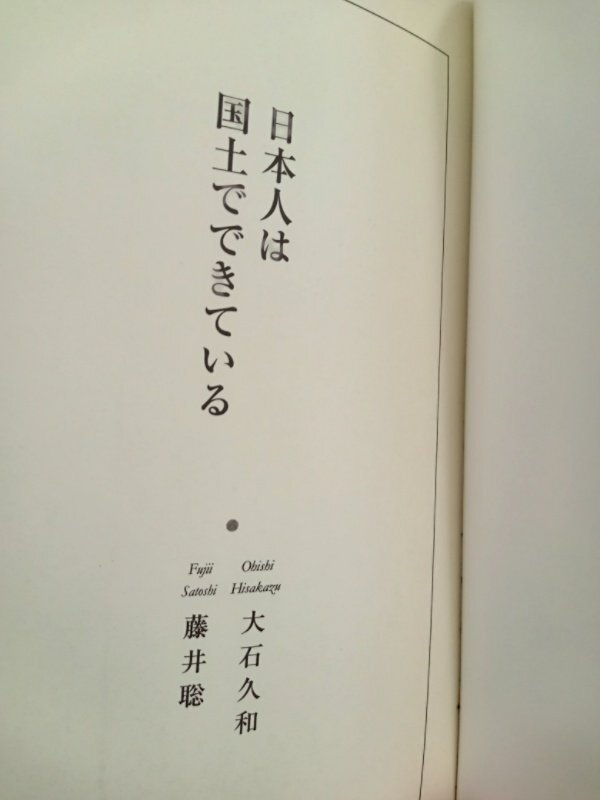 日本人は
国土でできている
●
Ohishi
Hisakazu
大石久和
Fujii
Satoshi
藤井聡